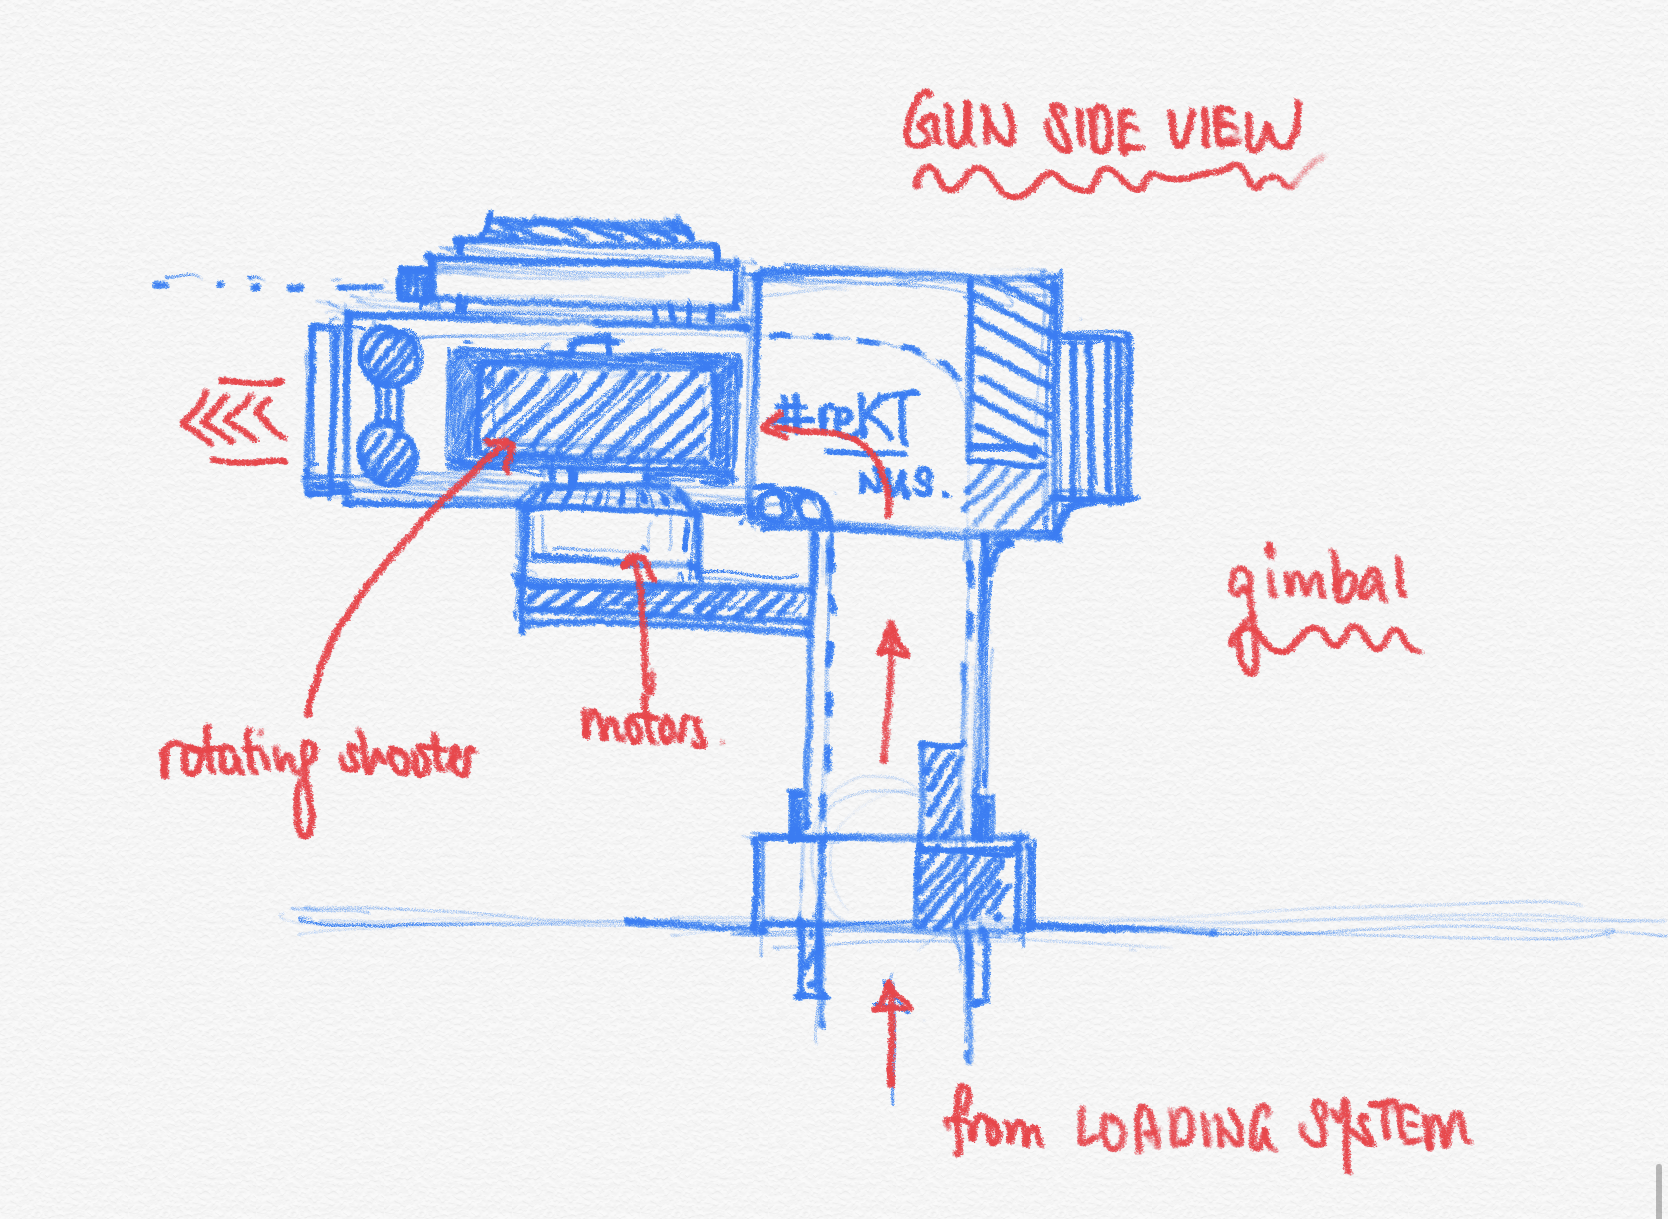 GUN SIDE VIEW
#roKT
NUS.
gimbal
rotating shooter
motors
from LOADING SYSTEM